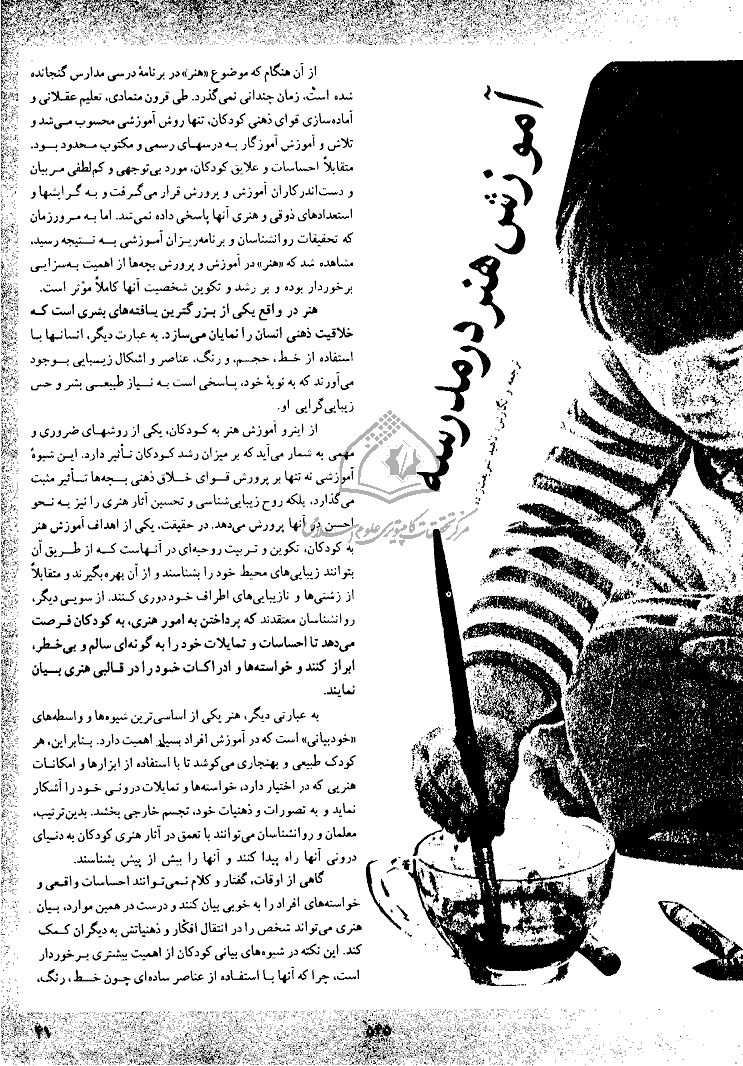 آموزش هنر در مدرسه
ترجمه و نگارش:
از آن هنگام که موضوع «هنر» در برنامهٔ درسی مدارس گنجانده
شده است، زمان چندانی نمی‌گذرد. طی قرون متمادی، تعلیم عقلانی و
آماده‌سازی قوای ذهنی کودکان، تنها روش آموزشی محسوب می‌شد و
تلاش و آموزش آموزگار به درسهای رسمی و مکتوب محدود بود.
متقابلاً احساسات و علایق کودکان، مورد بی‌توجهی و کم‌لطفی مربیان
و دست‌اندرکاران آموزش و پرورش قرار می‌گرفت و به گرایشها و
استعدادهای ذوقی و هنری آنها پاسخی داده نمی‌شد. اما به مرور زمان
که تحقیقات روانشناسان و برنامه‌ریزان آموزشی به نتیجه رسید،
مشاهده شد که «هنر» در آموزش و پرورش بچه‌ها از اهمیت به‌سزایی
برخوردار بوده و بر رشد و تکوین شخصیت آنها کاملاً مؤثر است.
هنر در واقع یکی از بزرگترین یافته‌های بشری است که
خلاقیت ذهنی انسان را نمایان می‌سازد. به عبارت دیگر، انسانها با
استفاده از خط، حجم، و رنگ، عناصر و اشکال زیبایی بوجود
می‌آورند که به نوبهٔ خود، پاسخی است به نیاز طبیعی بشر و حس
زیبایی‌گرایی او.
از اینرو آموزش هنر به کودکان، یکی از روشهای ضروری و
مهمی به شمار می‌آید که بر میزان رشد کودکان تأثیر دارد. این شیوهٔ
آموزشی نه تنها بر پرورش قوای خلاق ذهنی بچه‌ها تأثیر مثبت
می‌گذارد، بلکه روح زیبایی‌شناسی و تحسین آثار هنری را نیز به نحو
احسن در آنها پرورش می‌دهد. در حقیقت، یکی از اهداف آموزش هنر
به کودکان، تکوین و تربیت روحیه‌ای در آنهاست که از طریق آن
بتوانند زیبایی‌های محیط خود را بشناسند و از آن بهره بگیرند و متقابلاً
از زشتی‌ها و نازیبایی‌های اطراف خود دوری کنند. از سویی دیگر،
روانشناسان معتقدند که پرداختن به امور هنری، به کودکان فرصت
می‌دهد تا احساسات و تمایلات خود را به گونه‌ای سالم و بی‌خطر،
ابراز کنند و خواسته‌ها و ادراکات خود را در قالبی هنری بیان
نمایند.
به عبارتی دیگر، هنر یکی از اساسی‌ترین شیوه‌ها و واسطه‌های
«خودبیانی» است که در آموزش افراد بسیار اهمیت دارد. بنابراین، هر
کودک طبیعی و بهنجاری می‌کوشد تا با استفاده از ابزارها و امکانات
هنریی که در اختیار دارد، خواسته‌ها و تمایلات درونی خود را آشکار
نماید و به تصورات و ذهنیات خود، تجسم خارجی بخشد. بدین‌ترتیب،
معلمان و روانشناسان می‌توانند با تعمق در آثار هنری کودکان به دنیای
درونی آنها راه پیدا کنند و آنها را بیش از پیش بشناسند.
گاهی از اوقات، گفتار و کلام نمی‌توانند احساسات واقعی و
خواسته‌های افراد را به خوبی بیان کنند و درست در همین موارد، بیان
هنری می‌تواند شخص را در انتقال افکار و ذهنیاتش به دیگران کمک
کند. این نکته در شیوه‌های بیانی کودکان از اهمیت بیشتری برخوردار
است، چرا که آنها با استفاده از عناصر ساده‌ای چون خط، رنگ،
مرکز تحقیقات کامپیوتری علوم اسلامی
۵۴۵
۴۱